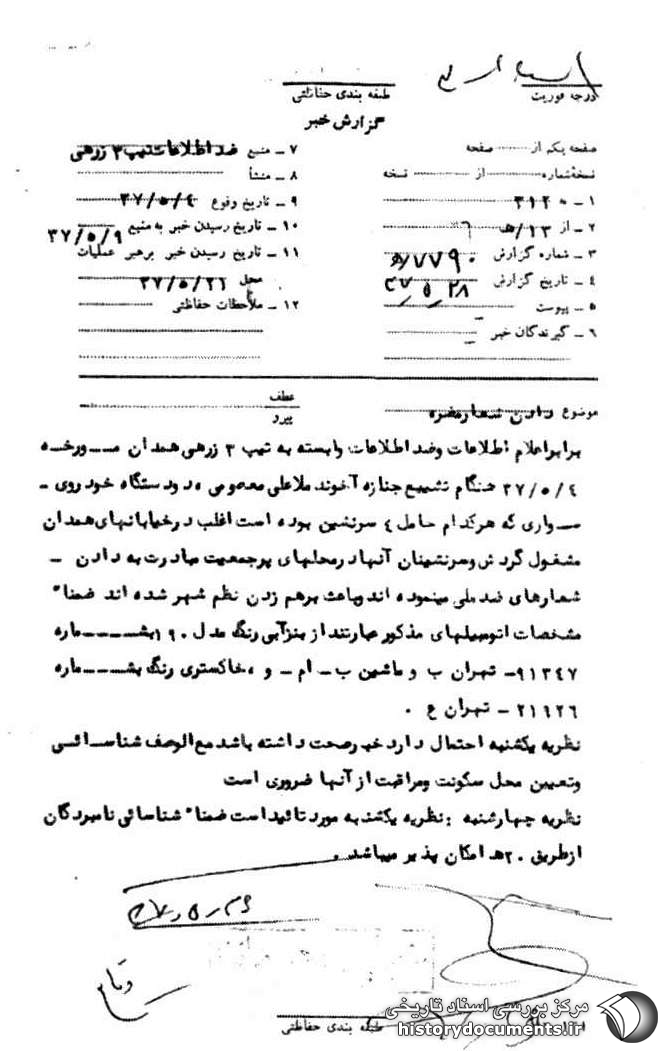 درجه فوریت
طبقه بندی حفاظتی
گزارش خبر
صفحه یکم از صفحه
نسخه شماره از نسخه
۱ ـ ۳۱۲۰
۲ ـ از ۱۳/هـ
۳ ـ شماره گزارش ۷۷۹۰
۴ ـ تاریخ گزارش ۲۸ ر۵ ر۳۷
۵ ـ پیوست
۶ ـ گیرندگان خبر
۷ ـ منبع ضد اطلاعات تیپ ۳ زرهی
۸ ـ منشأ
۹ ـ تاریخ وقوع ۳۷/۵/۴
۱۰ ـ تاریخ رسیدن خبر به منبع ۳۷/۵/۹
۱۱ ـ تاریخ رسیدن خبر برهبر عملیات
محل ۳۷/۵/۲۲
۱۲ ـ ملاحظات حفاظتی
موضوع دادن شعار مضره
عطف
پیرو
برابر اعلام اطلاعات وضد اطلاعات وابسته به تیپ ۳ زرهی همدان مــورخــه
۳۷/۵/۴ هنگام تشییع جنازه آخوند ملاعلی معصومی دو دستگاه خودروی ـ
ســواری که هرکدام حامل ۴ سرنشین بوده است اغلب در خیابانهای همدان
مشغول گردش وسرنشینان آنها در محلهای پرجمعیت مبادرت به دادن ـ
شعارهای ضد ملی مینموده اند وباعث برهم زدن نظم شهر شده اند ضمناً
مشخصات اتومبیلهای مذکور عبارتند از بنزآبی رنگ مدل ۱۹۰ بشــــماره
۹۱۳۴۷ـ تهران ب و ماشین ب ـ ام ـ و ،خاکستری رنگ بشــــماره
۲۱۹۲۶ ـ تهران ع .
نظریه یکشنبه احتمال دارد خبر صحت داشته باشد مع الوصف شناســائــی
وتعیین محل سکونت ومراقبت از آنها ضروری است
نظریه چهارشنبه : نظریه یکشنبه مورد تائید است ضمناً شناسائی نامبردگان
از طریق ۲۰هـ امکان پذیر میباشد .
طبقه بندی حفاظتی
مرکز بررسی اسناد تاریخی
historydocuments.ir